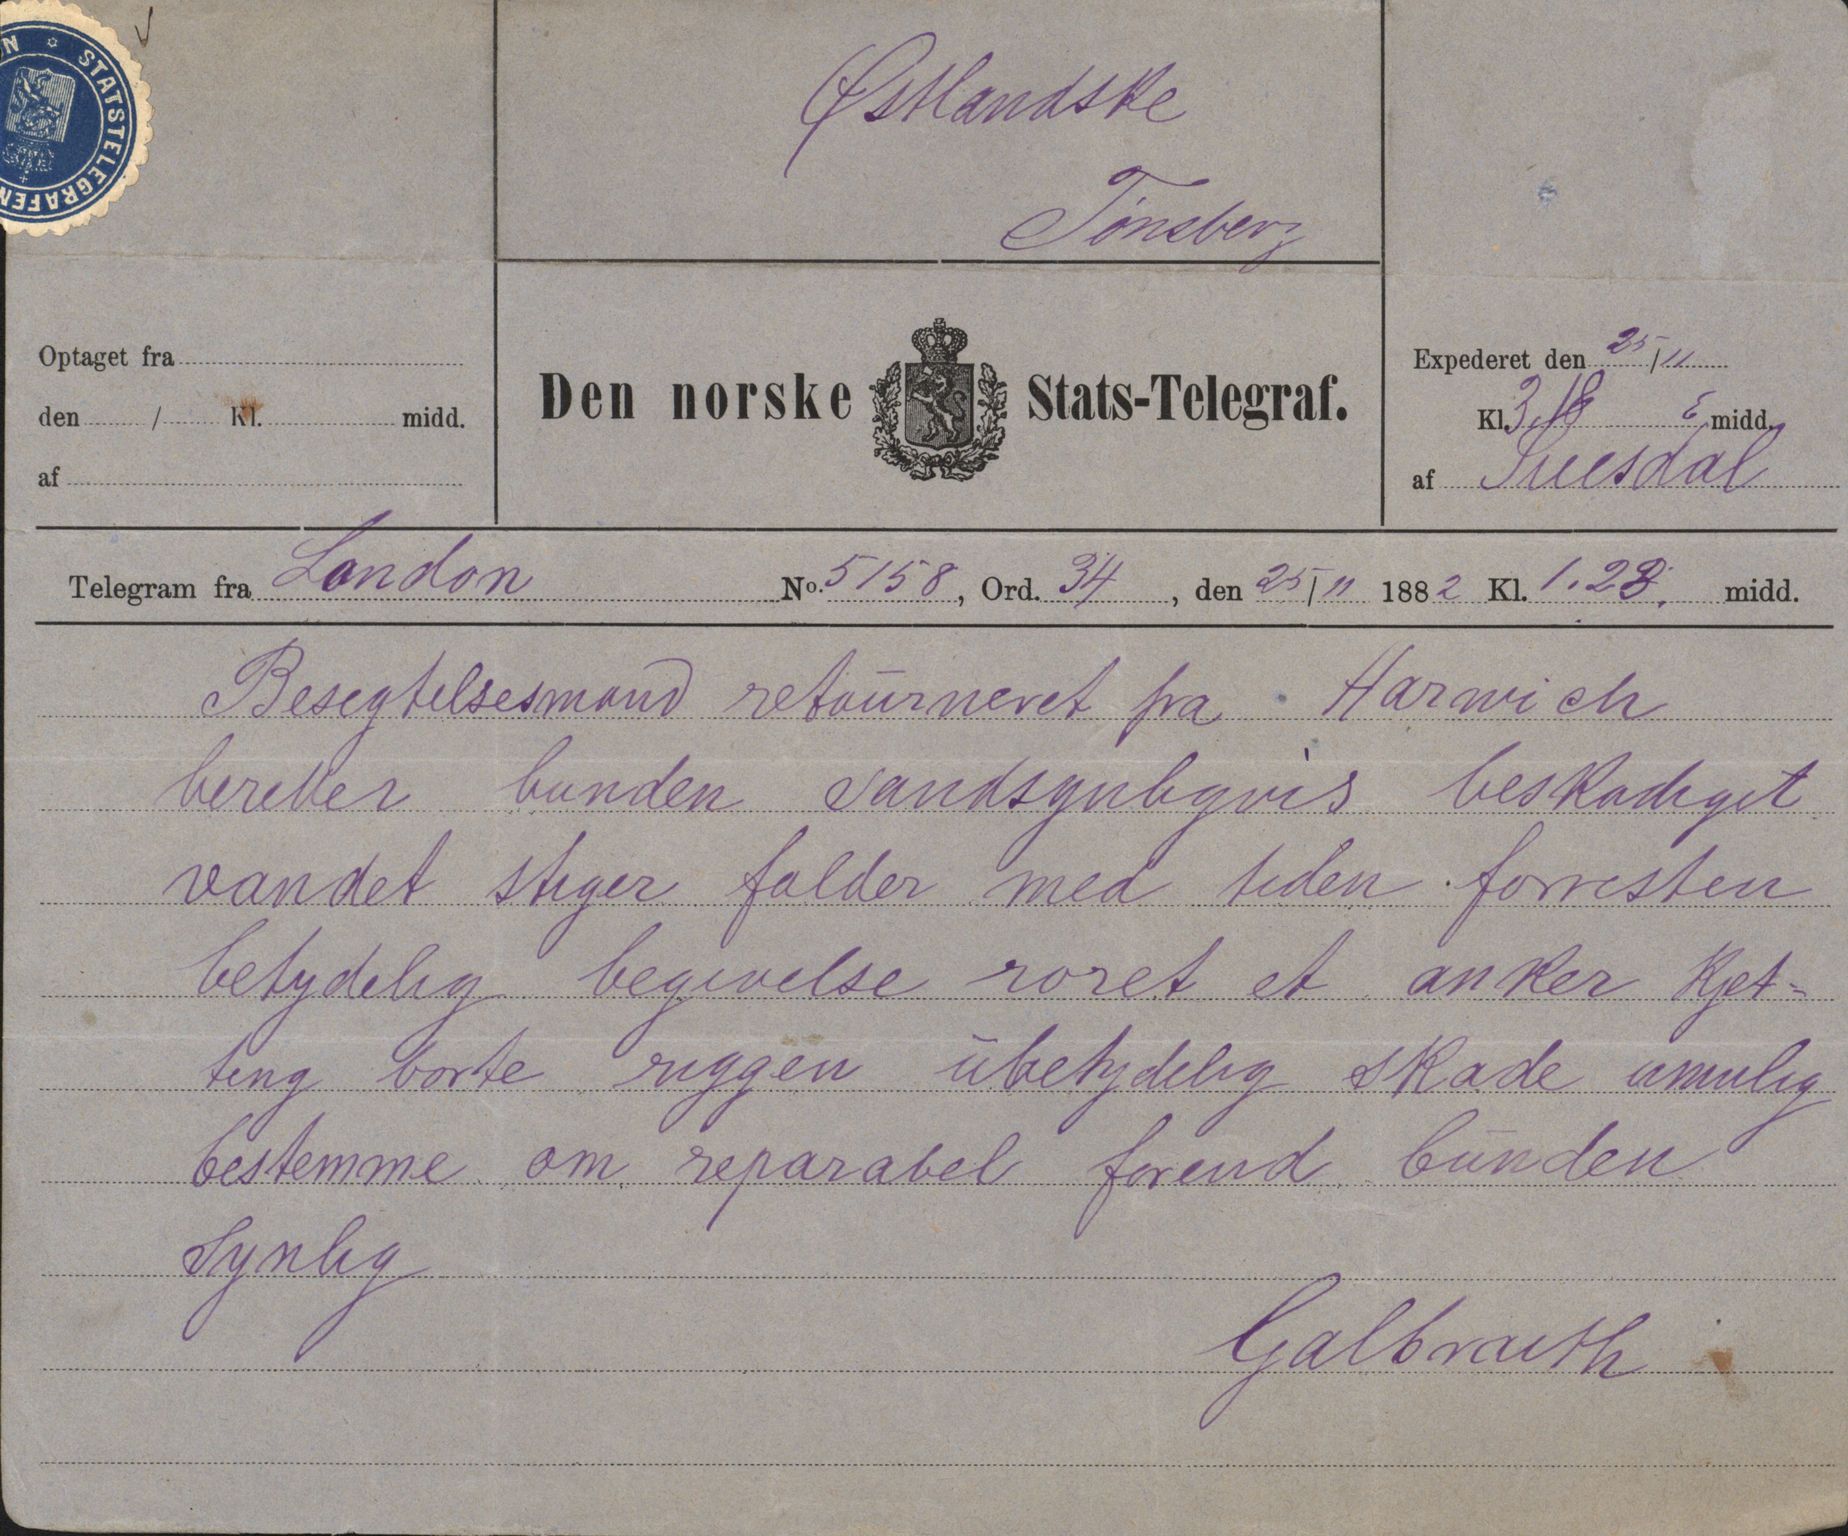 STATSTELEGRAFEN
Østlandske
Tönsberg
Optaget fra
den / Kl. midd.
af
Den norske Stats-Telegraf.
Expederet den 25/11
Kl. 3.18 E midd.
af
Telegram fra London No. 5158, Ord. 34, den 25/11 1882 Kl. 1.28. midd.
Besigtelsesmand retourneret fra Harwich
beretter bunden sandsynligvis beskadiget
vandet stiger falder med tiden forresten
betydelig begivelse roret et anker kjet-
ting borte riggen ubetydelig skade umulig
bestemme om reparabel forend bunden
synlig
Galbraith